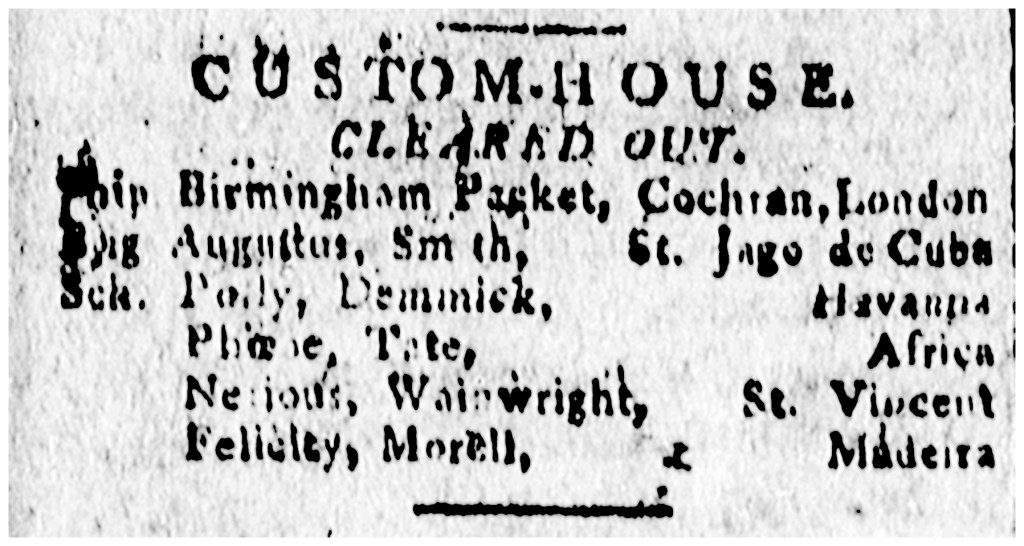 CUSTOM-HOUSE.
CLEARED OUT.
Ship Birmingham Packet, Cochran, London
Brig Augustus, Smith, St. Jago de Cuba
Sch. Polly, Demmick, Havanna
Phœbe, Tate, Africa
Wainwright, St. Vincent
Felicity, Morell, Madeira